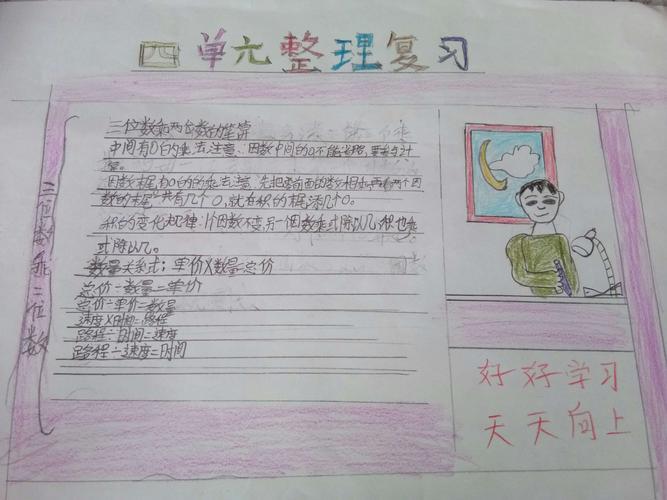 四单元整理复习
三位数乘二位数
三位数乘两位数的笔算
中间有0的乘法注意：因数中间的0不能省略，要参与计
算。
因数末尾有0的的乘法注意：先把0前面的数相乘，再看两个因
数的末尾共有几个0，就在积的末尾添几个0。
积的变化规律：1个因数不变，另一个因数乘或除以几，积也乘
或除以几。
数量关系式：单价×数量=总价
总价÷数量=单价
总价÷单价=数量
速度×时间=路程
路程÷时间=速度
路程÷速度=时间
好好学习
天天向上